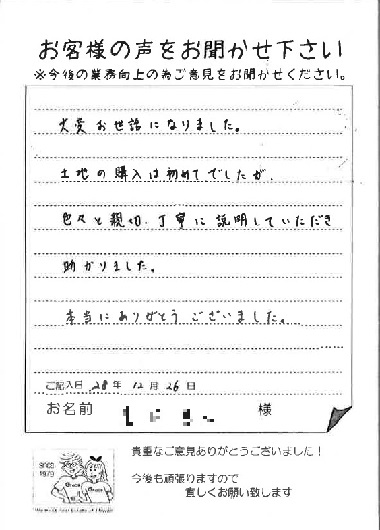 お客様の声をお聞かせ下さい
※今後の業務向上の為ご意見をお聞かせください。
大変お世話になりました。
土地の購入は初めてでしたが、
色々と親切、丁寧に説明していただき
助かりました。
本当にありがとうございました。
ご記入日 28年 12月 26日
お名前 様
貴重なご意見ありがとうございました！
今後も頑張りますので
宜しくお願い致します
SINCE 1979